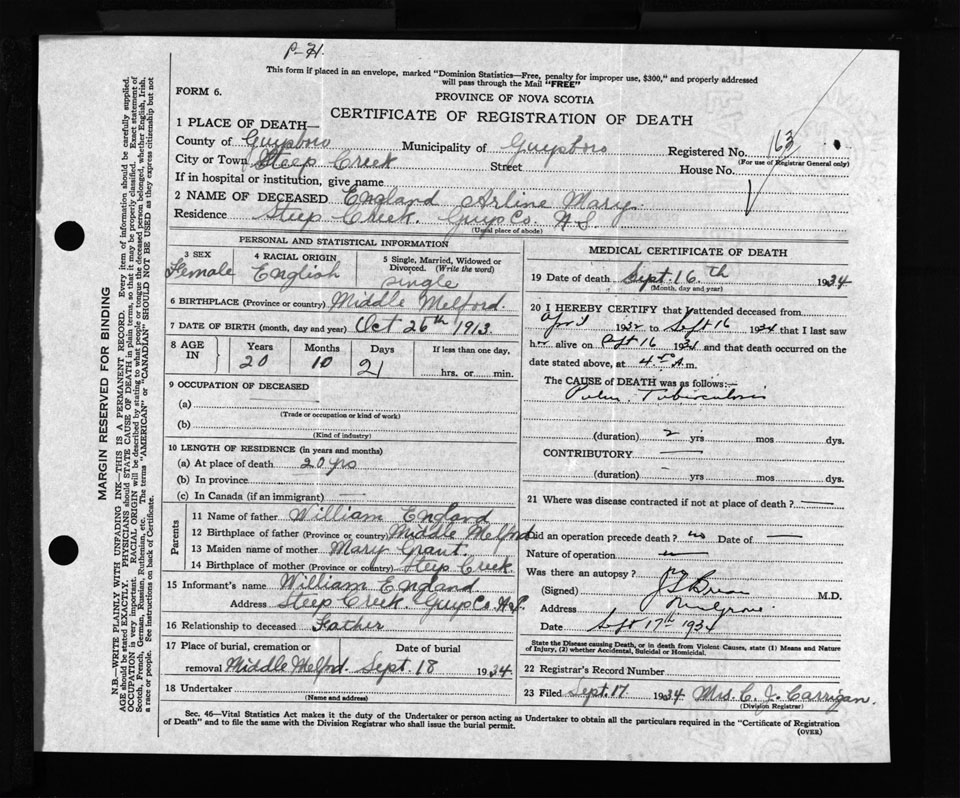 P-71.
This form if placed in an envelope, marked "Dominion Statistics—Free, penalty for improper use, $300," and properly addressed
will pass through the Mail "FREE"
FORM 6.
PROVINCE OF NOVA SCOTIA
CERTIFICATE OF REGISTRATION OF DEATH
1 PLACE OF DEATH—
County of Guysboro Municipality of Guysboro Registered No. 163
(For use of Registrar General only)
City or Town Steep Creek Street House No.
If in hospital or institution, give name
2 NAME OF DECEASED England Arline Mary.
Residence Steep Creek. Guys Co. N.S.
(Usual place of abode)
PERSONAL AND STATISTICAL INFORMATION
3 SEX 4 RACIAL ORIGIN 5 Single, Married, Widowed or
Divorced. (Write the word)
Female English single
6 BIRTHPLACE (Province or country) Middle Melford.
7 DATE OF BIRTH (month, day and year) Oct 26th 1913.
8 AGE IN Years Months Days If less than one day,
20 10 21 hrs. or min.
9 OCCUPATION OF DECEASED
(a)
(Trade or occupation or kind of work)
(b)
(Kind of industry)
10 LENGTH OF RESIDENCE (in years and months)
(a) At place of death 20 yrs
(b) In province
(c) In Canada (if an immigrant) —
Parents
11 Name of father William England
12 Birthplace of father (Province or country) Middle Melford
13 Maiden name of mother Mary Grant.
14 Birthplace of mother (Province or country) Steep Creek.
15 Informant's name William England
Address Steep Creek. Guys Co. N.S.
16 Relationship to deceased Father
17 Place of burial, cremation or Date of burial
removal Middle Melford. Sept. 18 1934
18 Undertaker
(Name and address)
MEDICAL CERTIFICATE OF DEATH
19 Date of death Sept. 16th 1934
(Month, day and year)
20 I HEREBY CERTIFY that I attended deceased from
April 1932 to Sept 16 1934 that I last saw
her alive on Sept 16 1934 and that death occurred on the
date stated above, at 4 A.m.
The CAUSE of DEATH was as follows:—
Pulm. Tuberculosis
(duration) 2 yrs mos dys.
CONTRIBUTORY —
(duration) — yrs mos dys.
21 Where was disease contracted if not at place of death? —
Did an operation precede death? no Date of —
Nature of operation
Was there an autopsy? no
(Signed) M.D.
Address Mulgrave
Date Sept 17th 1934
State the Disease causing Death, or in death from Violent Causes, state (1) Means and Nature
of Injury, (2) whether Accidental, Suicidal or Homicidal.
22 Registrar's Record Number
23 Filed Sept. 17 1934 Mrs. C. J. Carrigan.
(Division Registrar)
Sec. 46—Vital Statistics Act makes it the duty of the Undertaker or person acting as Undertaker to obtain all the particulars required in the "Certificate of Registration
of Death" and to file the same with the Division Registrar who shall issue the burial permit.
(OVER)
MARGIN RESERVED FOR BINDING
N.B.—WRITE PLAINLY WITH UNFADING INK—THIS IS A PERMANENT RECORD. Every item of information should be carefully supplied.
AGE should be stated EXACTLY. PHYSICIANS should STATE CAUSE OF DEATH in plain terms, so that it may be properly classified. Exact statement of
OCCUPATION is very important. RACIAL ORIGIN will be described by stating to what people or tongue the deceased person belonged, whether English, Irish,
Scotch, French, German, Russian, Ruthenian, etc. The terms "AMERICAN" or "CANADIAN" SHOULD NOT BE USED as they express citizenship but not
a race or people. See instructions on back of Certificate.